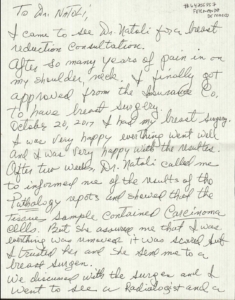 To Dr. Natoli,
I came to see Dr. Natoli for a breast
reduction consultation.
After so many years of pain in on
my shoulder, neck. I finally got
approved from the Insurance Co.
To have breast surgery.
October 20, 2017 I had my breast surgery.
I was very happy everthing went well
and I was very happy with the results.
After two weeks, Dr. Natoli called me
to informed me of the results of the
Pathology reports and showed that the
tissue sample contained Carcinoma
cells. But she assured me that
everthing was removed it was sealed but
I trusted her and she send me to a
breast surgeon.
We discussed with the surgeon and I
went to see a Radiologist and a